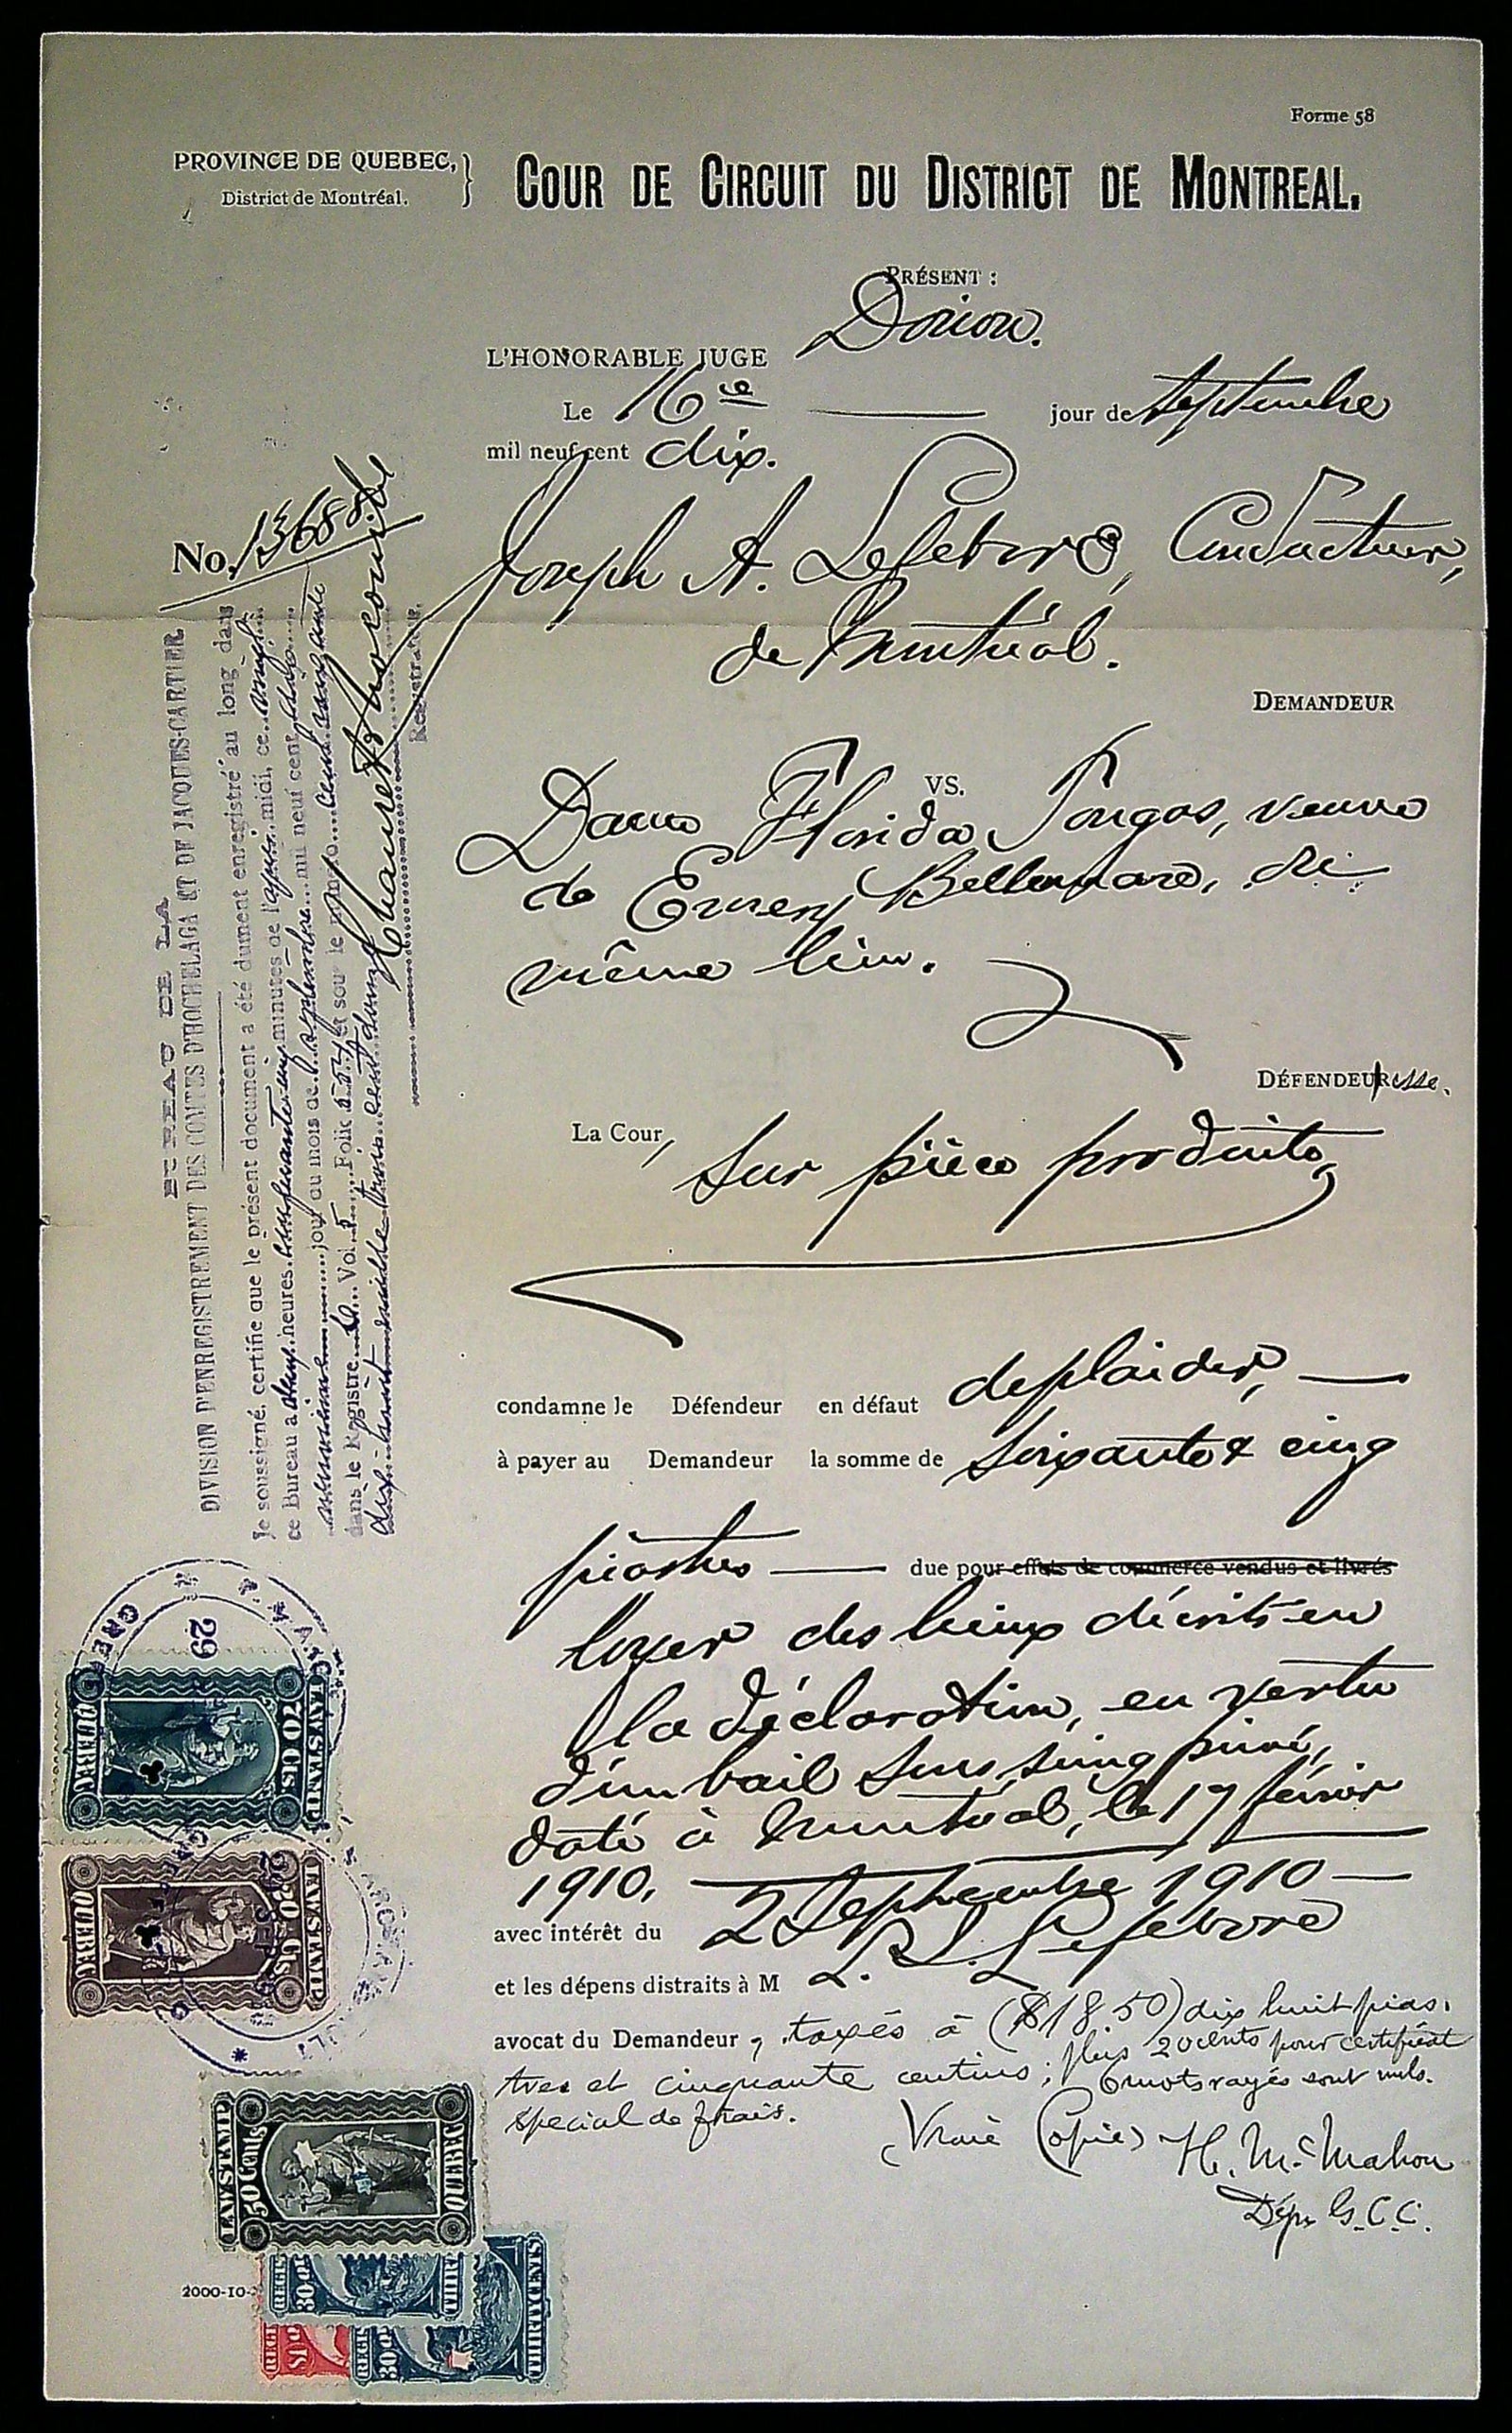 Forme 58
PROVINCE DE QUEBEC,
District de Montréal.
COUR DE CIRCUIT DU DISTRICT DE MONTREAL.
PRÉSENT :
L'HONORABLE JUGE Dorion.
Le 16e jour de septembre
mil neuf cent dix.
No. 13688
Joseph A. Lefebvre, Conducteur,
de Montréal.
DEMANDEUR
VS.
Dame Florida Pongas, veuve
de Emery Bellemare, du
même lieu.
DÉFENDEUResse.
La Cour, sur pièce produite,
condamne le Défendeur en défaut deplaider,
à payer au Demandeur la somme de soixante & cinq
piastres due pour effets de commerce vendus et livrés
loyer des lieux décrits en
la déclaration, en vertu
d'un bail sous seing privé,
daté à Montréal, le 17 février
1910.
avec intérêt du 2 Septembre 1910
et les dépens distraits à M L. Lefebvre
avocat du Demandeur, taxés à ($18.50) dix huit pias-
tres et cinquante centins; plus 20 cents pour certificat
special de frais. 6 mots rayés sont nuls.
Vraie Copie) H. McMahon
Dép. G.C.C.
BUREAU DE LA
DIVISION D'ENREGISTREMENT DES COMTES D'HOCHELAGA ET DE JACQUES-CARTIER
Je soussigné, certifie que le présent document a été dument enregistré au long dans
ce Bureau a deux heures cinquante cinq minutes de l'après midi, ce vingt
neuvième jour du mois de septembre mil neuf cent dix
dans le Registre Vol. Folio et sous le numéro cent cinquante
dix-huit mille trois cent
Registrateur.
29
LAW STAMP
20 CTS
QUEBEC
LAW STAMP
20 CTS
QUEBEC
LAW STAMP
50 Cents
QUEBEC
REGIS
30 cts
THIRT
REGI
$1
REGIS
30 cts
THIRTY CENTS
2000-10-